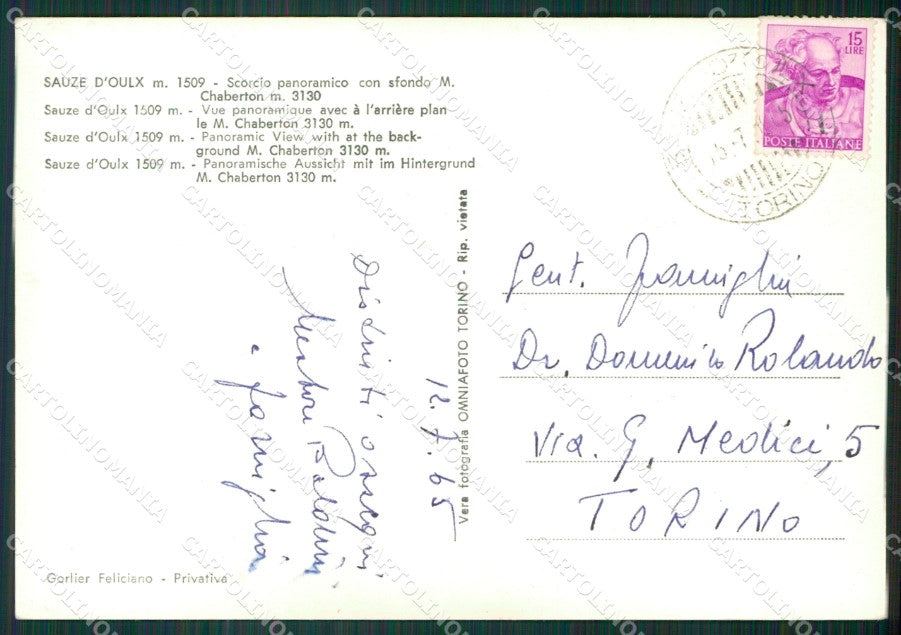 SAUZE D'OULX m. 1509 - Scorcio panoramico con sfondo M.
Chaberton m. 3130
Sauze d'Oulx 1509 m. - Vue panoramique avec à l'arrière plan
le M. Chaberton 3130 m.
Sauze d'Oulx 1509 m. - Panoramic View with at the back-
ground M. Chaberton 3130 m.
Sauze d'Oulx 1509 m. - Panoramische Aussicht mit im Hintergrund
M. Chaberton 3130 m.
15
LIRE
POSTE ITALIANE
TORINO
Vera fotografia OMNIAFOTO TORINO - Rip. vietata
12.7.65
Distinti ossequi
Baldini
e famiglia
Gent. Famiglia
Dr. Domenico Rolando
Via G. Medici, 5
TORINO
Gorlier Feliciano - Privativa
CARTOLINOMANIA